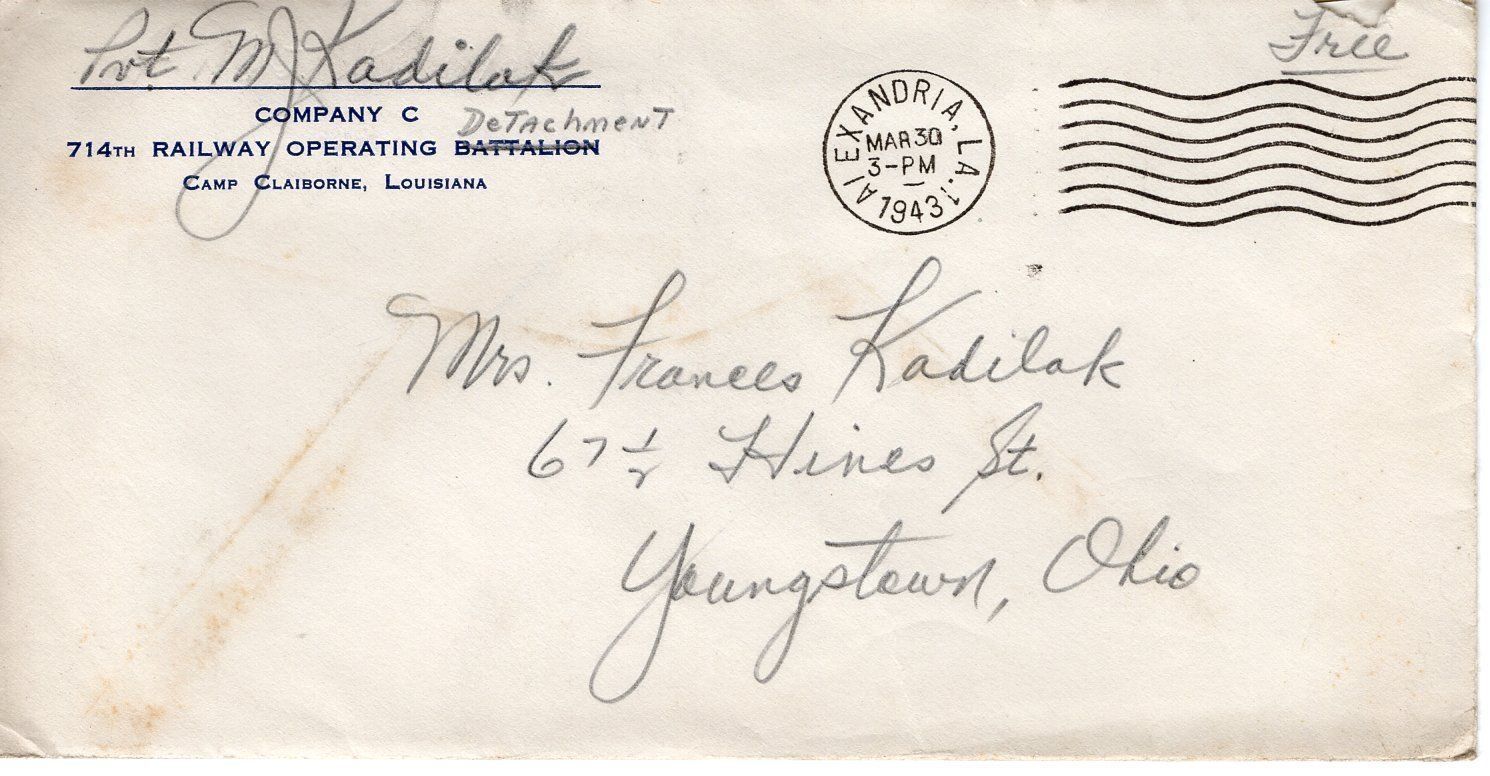 Pvt. M J Kadilak
Free
COMPANY C
DeTAchmenT
714TH RAILWAY OPERATING BATTALION
CAMP CLAIBORNE, LOUISIANA
ALEXANDRIA, LA. 1
MAR 30
3-PM
1943
Mrs. Frances Kadilak
67 1/2 Hines St.
Youngstown, Ohio